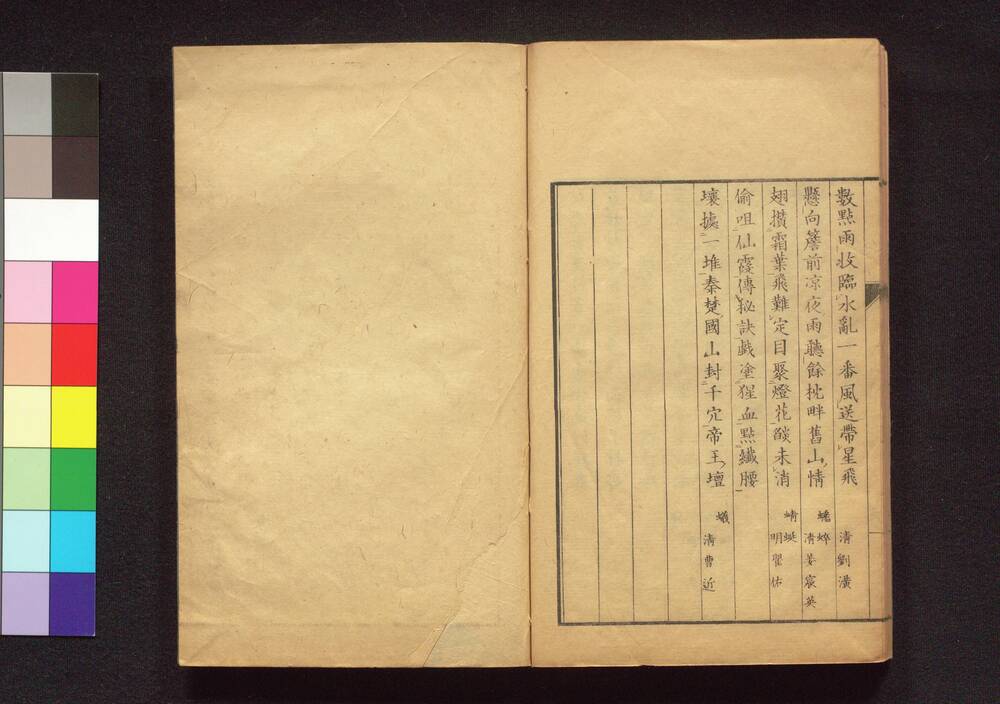 數點雨收臨水亂一番風送帶星飛 清劉潢
懸向簷前凉夜雨聽餘枕畔舊山情 蟋蟀 清姜宸英
翅攢霜葉飛難定目聚燈花燄未消 蜻蜓 明瞿佑
偷咀仙霞傳秘訣戯塗猩血點纖腰
壤據一堆秦楚國山封千穴帝王壇 蟻 清曹近